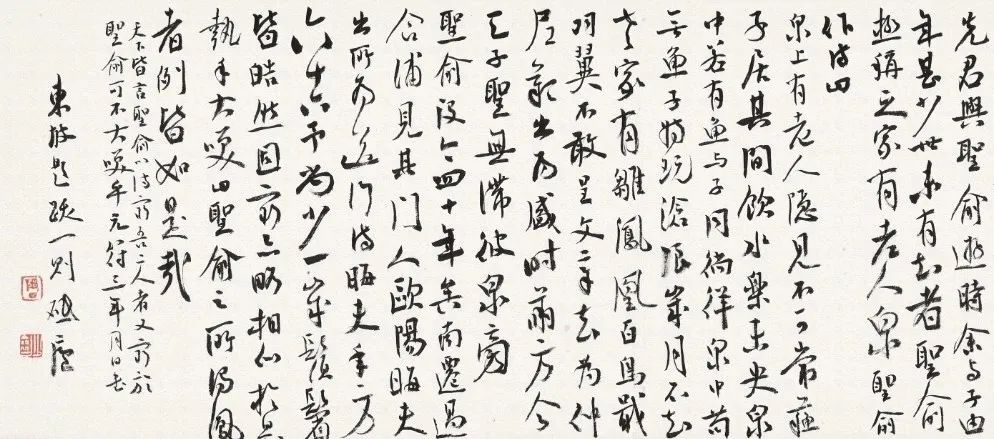 先君與聖俞遊時余与子由
年甚少世未有知者聖俞
極稱之家有老人泉聖俞
作詩曰
泉上有老人隱見不可常蘇
子居其間飲水樂未央泉
中若有魚与子同徜徉泉中苟
無魚子特玩滄浪歲月不知
老家有雛鳳凰百鳥戢
羽翼不敢呈文章去為仲
尼歎出為盛時方今
天子聖無滯彼泉旁
聖俞沒今四十年矣南遷過
合浦見其門人歐陽晦夫
出所為送行詩晦夫年方
六十六予尚少一歲鬚鬢
皆皓然固窮亦略相似於是
執手大笑曰聖俞之所謂鳳
者例皆如是哉
天下皆言聖俞以詩窮吾二人者又窮於
聖俞可不大笑乎元符三年月日書
東坡題跋一則